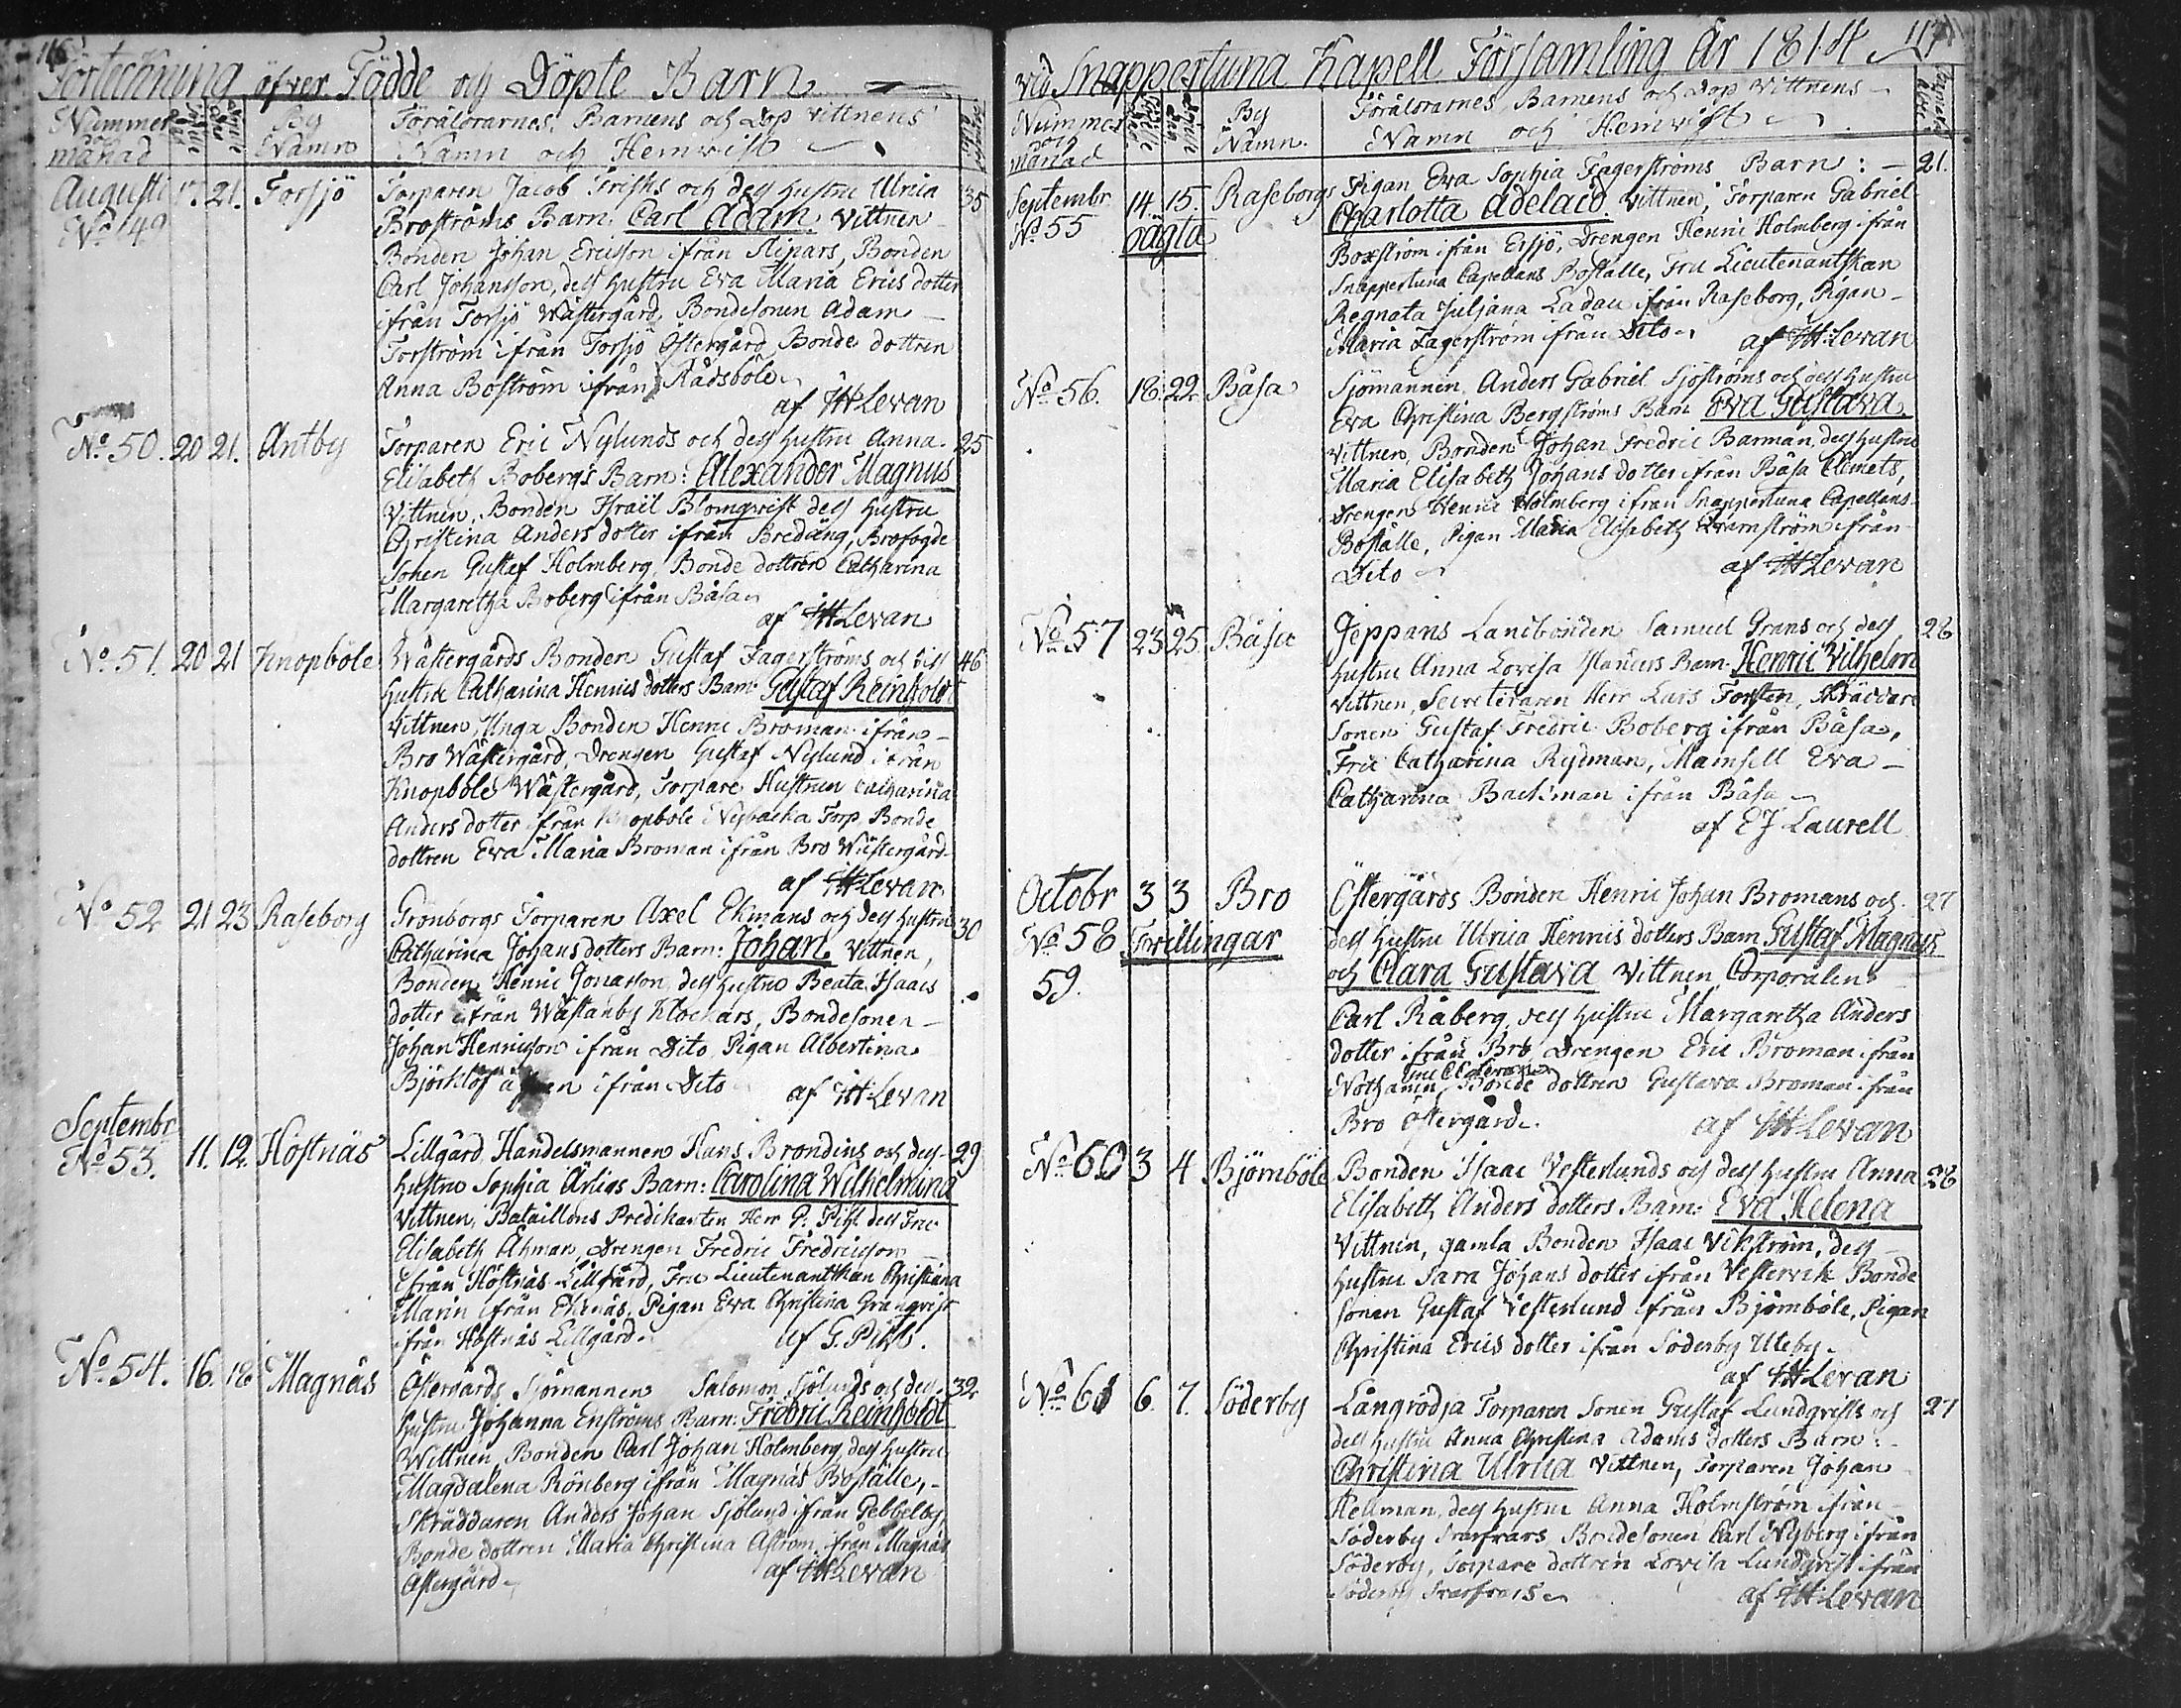 116
Förteckning öfver Födde och Döpte Barn
Nummer och månad
Födde dag
Döpte dag
By Namn
Föräldrarnes, Barnens och Dop vittnens
Namn och Hemvist
Augusti 17. 21. Forsjö
No 49
Torparen Jacob Frisks och dess hustru Ulrica 35
Broströms Barn: Carl Adam. Vittnen
Bonden Johan Ericsson ifrån Ripars, Bonden
Carl Johansson, dess hustru Eva Maria Erics dotter
ifrån Torsjö Wästergård, Bondesonen Adam
Forström ifrån Forsjö Östergård Bonde dottren
Anna Boström ifrån Rådsböle
af HLevan
No 50. 20 21. Antby
Torparen Eric Nylunds och dess hustru Anna 25
Elisabeth Bobergs Barn: Alexander Magnus
Vittnen, Bonden Israil Blomqwist dess hustru
Christina Anders dotter ifrån Bredäng, Brofogde
Sonen Gustaf Holmberg, Bonde dottren Catharina
Margaretha Boberg ifrån Båsa
af HLevan
No 51. 20 21 Knopböle
Wästergårds Bonden Gustaf Fagerströms och dess 46
hustru Catharina Henrics dotters Barn: Gustaf Reinholdt
Vittnen, Unga Bonden Henric Broman ifrån
Bro Wästergård, Drengen Gustaf Nylund ifrån
Knopböle Wästergård, Torpare Hustrun Catharina
Anders dotter ifrån Knopböle Nybacka Torp, Bonde
dottren Eva Maria Broman ifrån Bro Wästergård
af HLevan
No 52 21 23 Raseborg
Grönborgs Torparen Axel Ekmans och dess hustru 30
Catharina Johansdotters Barn: Johan. Vittnen,
Bonden Henric Jonasson, dess hustru Beata Isaacs
dotter ifrån Wästanby Klockars, Bondesonen
Johan Henricsson ifrån Dito Pigan Albertina
Björklöf äfven ifrån Dito af HLevan
Septembr
No 53. 11. 12. Höstnäs
Lillgård, Handelsmannen Hans Brondins och dess 29
hustru Sophia Ärligs Barn: Carolina Wilhelmina
Vittnen, Bataillons Predikanten Herr G. Pihl dess Fru
Elisabeth Åhman, Drengen Fredric Fredricsson
ifrån Höstnäs Lillgård, Fru Lieutenantskan Christiana
Marin ifrån Ekenäs, Pigan Eva Christina Granqvist
ifrån Höstnäs Lillgård. af G. Pihl.
No 54. 16. 18 Magnäs
Östergårds Sjömannen Salomon Sjölunds och dess 32
hustru Johanna Enströms Barn: Fredric Reinholdt
Wittnen, Bonden Carl Johan Holmberg, dess hustru
Magdalena Rönberg ifrån Magnäs Boställe,
Skräddaren Anders Johan Sjölund ifrån Gebbelby,
Bonde dottren Maria Christina Åström ifrån Magnäs
Östergård af HLevan
117
vid Snappertuna Kapell Församling År 1814
Nummer och månad
Födde dag
Döpte dag
By Namn.
Föräldrarnes, Barnens och Dop Vittnens
Namn och Hemvist
Septembr 14. 15. Raseborgs
No 55 oägta
Pigan Eva Sophia Fagerströms Barn: 21.
Charlotta Adelaid. Vittnen, Torparen Gabriel
Boxström ifrån Ersjö, Drengen Henric Holmberg ifrån
Snappertuna Capellans Boställe, Fru Lieutenantskan
Regnata Juljana Ladau ifrån Raseborg, Pigan
Maria Fagerström ifrån Dito af HLevan
No 56. 18. 22. Båsa
Sjömannen Anders Gabriel Sjöströms och dess hustru
Eva Christina Bergströms Barn Eva Gustava
vittnen, Bonden Johan Fredric Barman, dess hustru
Maria Elisabeth Johans dotter ifrån Båsa Clemets,
Drengen Henric Holmberg ifrån Snappertuna Capellans
Boställe, Pigan Maria Elisabeth ifrån
Dito af HLevan
No 57 23 25. Båsa
Jeppans Landbonden Samuel Grans och dess 28
hustru Anna Lovisa Islanders Barn. Henric Vilhelm
Vittnen, Secreteraren Herr Lars Forsten, Skräddare
sonen Gustaf Fredric Boberg ifrån Båsa,
Fru Catharina Rydman, Mamsell Eva
Catharina Backman ifrån Båsa
af EJ Laurell
Octobr 3 3 Bro
No 58 Tvillingar
59.
Östergårds Bonden Henric Johan Bromans och 27
dess hustru Ulrica Henrics dotters Barn Gustaf Magnus
och Clara Gustava Vittnen, Corporalen
Carl Råberg, dess hustru Margaretha Anders
dotter ifrån Bro, Drengen Eric Broman ifrån
Nothamn, Bonde dottren Gustava Broman ifrån
Bro Östergård. af HLevan
No 60 3 4 Björnböle
Bonden Isaac Vesterlunds och dess hustru Anna 28
Elisabeth Anders dotters Barn: Eva Helena
Vittnen, gamla Bonden Isaac Vikström, dess
hustru Sara Johans dotter ifrån Vestervik Bonde
sonen Gustaf Vesterlund ifrån Björnböle, Pigan
Christina Erics dotter ifrån Söderby Uteby.
af HLevan
No 61 6. 7. Söderby
Långrödja Torparen Sonen Gustaf Lundqvists och 27
dess hustru Anna Christina Adams dotters Barn:
Christina Ulrica Vittnen, Torparen Johan
Hellman, dess hustru Anna Holmström ifrån
Söderby Svarfvars Bondesonen Carl Nyberg ifrån
Söderby, Torpare dottren Lovisa Lundqvist ifrån
Söderby Svarfvars af HLevan